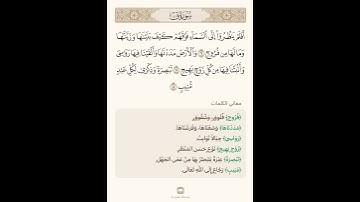 سورة ق
أَفَلَمْ يَنظُرُوٓا۟ إِلَى ٱلسَّمَآءِ فَوْقَهُمْ كَيْفَ بَنَيْنَٰهَا وَزَيَّنَّٰهَا
وَمَا لَهَا مِن فُرُوجٍ ٦ وَٱلْأَرْضَ مَدَدْنَٰهَا وَأَلْقَيْنَا فِيهَا رَوَٰسِىَ
وَأَنۢبَتْنَا فِيهَا مِن كُلِّ زَوْجٍۭ بَهِيجٍ ٧ تَبْصِرَةً وَذِكْرَىٰ لِكُلِّ عَبْدٍ
مُّنِيبٍ ٨
معاني الكلمات
﴿فُرُوجٍ﴾ فُتُوقٍ، وَشُقُوقٍ.
﴿مَدَدْنَاهَا﴾ وَسَّعْنَاهَا، وَفَرَشْنَاهَا.
﴿رَوَاسِيَ﴾ جِبَالًا ثَوَابِتَ.
﴿زَوْجٍ بَهِيجٍ﴾ نَوْعٍ حَسَنِ المَنْظَرِ.
﴿تَبْصِرَةً﴾ عِبْرَةً يُتَبَصَّرُ بِهَا مِنْ عَمَى الجَهْلِ.
﴿مُنِيبٍ﴾ رَجَّاعٍ إِلَى اللهِ تَعَالَى.